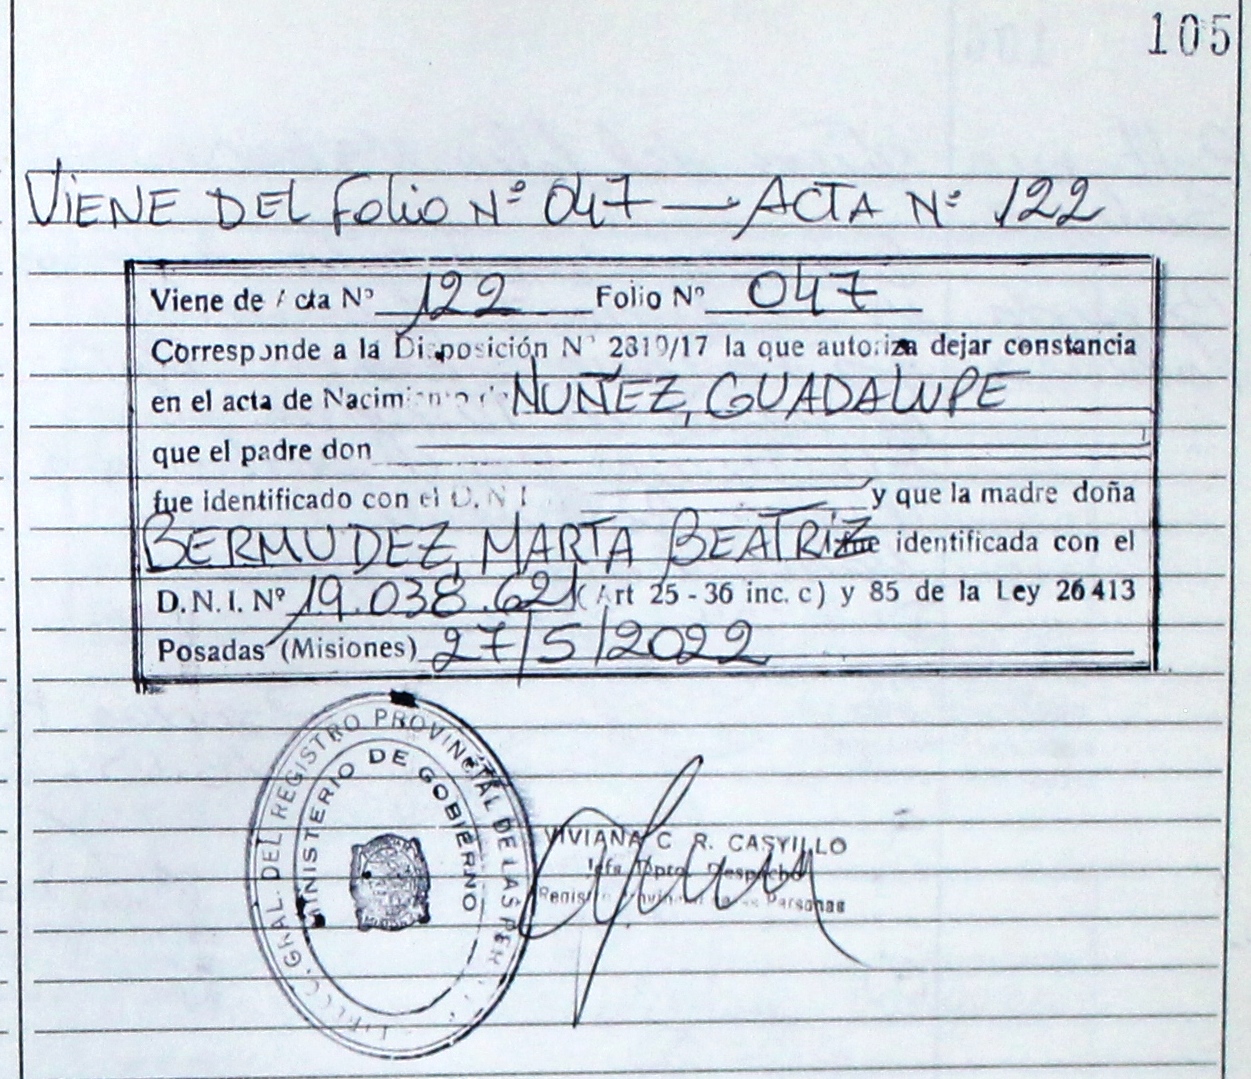 105
VIENE DEL Folio Nº 047 — ACTA Nº 122
Viene de Acta Nº 122 Folio Nº 047
Corresponde a la Disposición Nº 2819/17 la que autoriza dejar constancia
en el acta de Nacimiento de NUÑEZ, GUADALUPE
que el padre don
fue identificado con el D.N.I. y que la madre doña
BERMUDEZ, MARTA BEATRIZ fue identificada con el
D.N.I. Nº 19.038.621 (Art 25 - 36 inc. c) y 85 de la Ley 26413
Posadas (Misiones) 27/5/2022
GRAL. DEL REGISTRO PROVINCIAL DE LAS PER
MINISTERIO DE GOBIERNO
VIVIANA C R. CASTILLO
Jefe Dpto. Despacho
Registro Provincial de las Personas